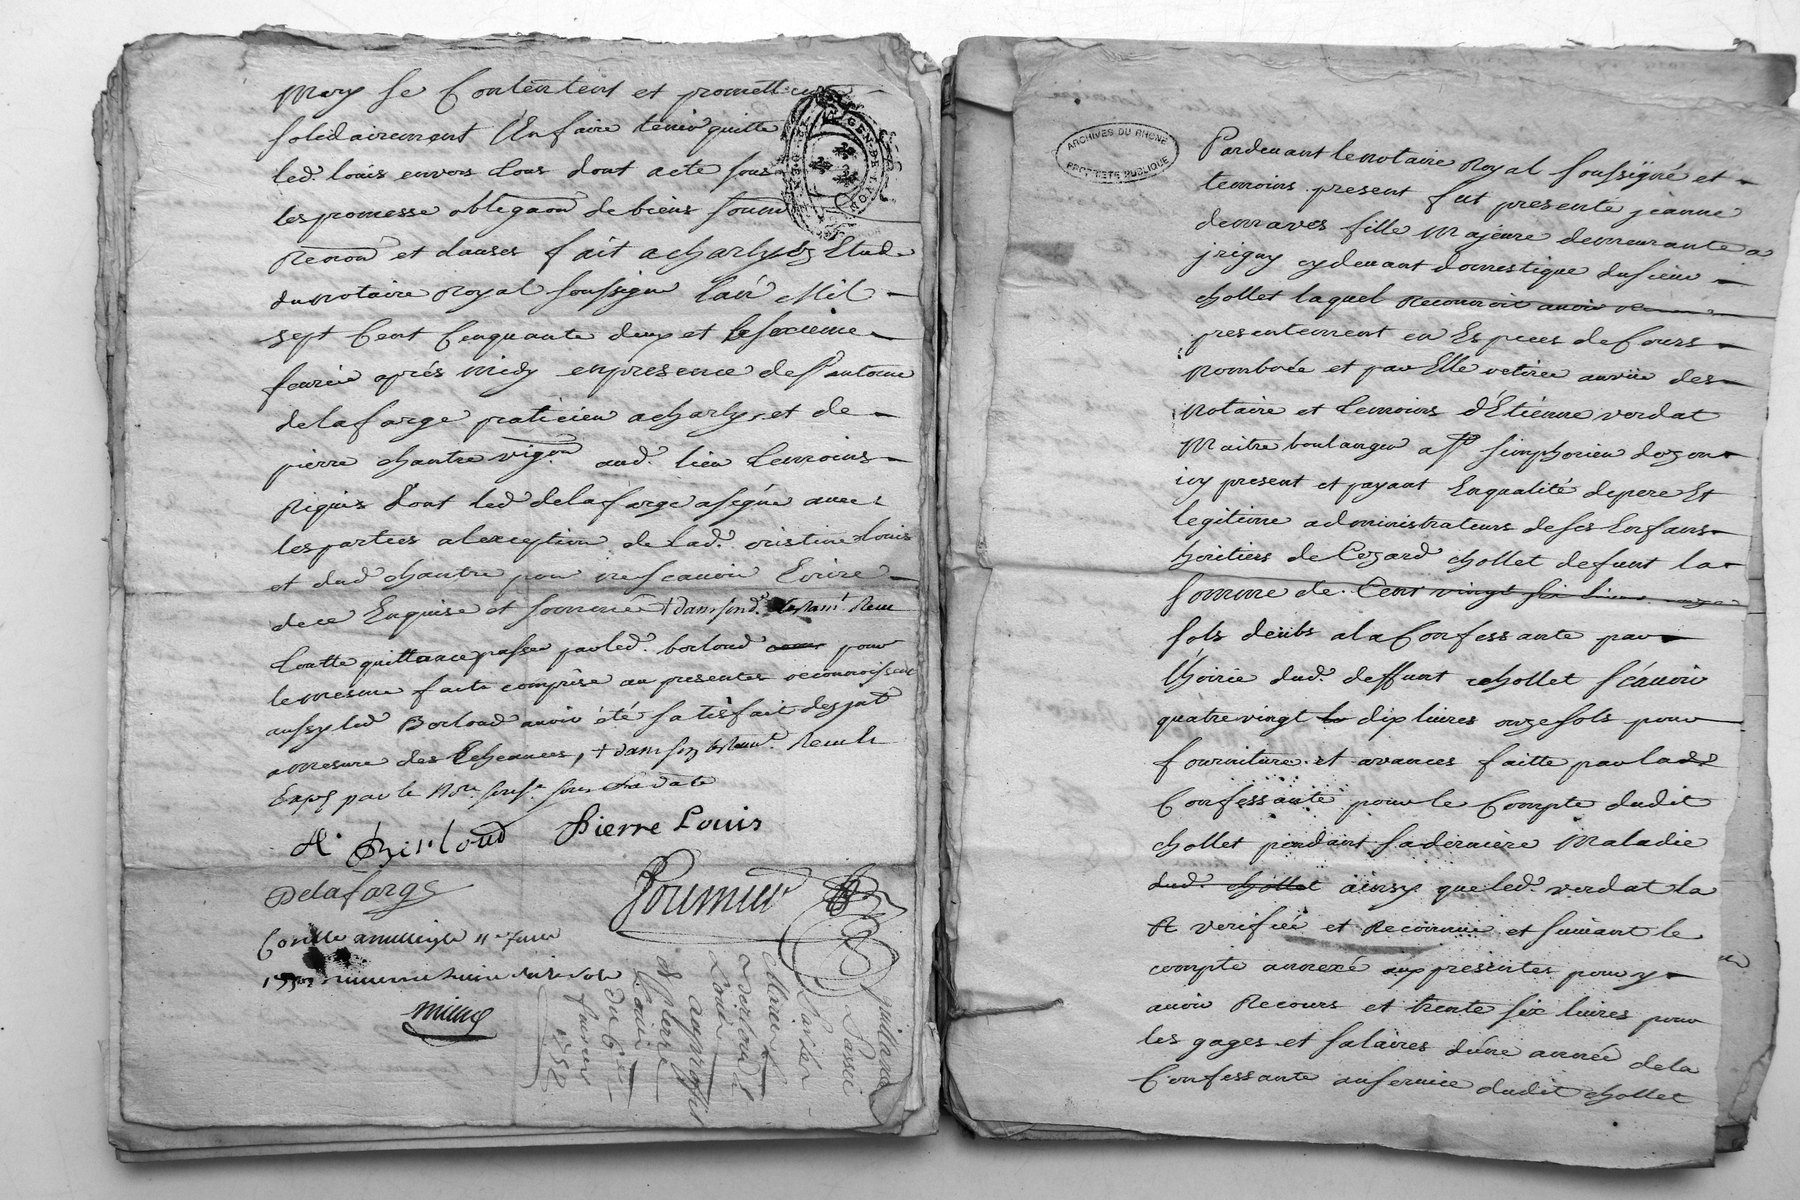 Mary se Contentent et promettent
solidairement l'En faire tenir quitte
led. louis envers tous dont acte sous
les promesse obligaon de biens soum
Renon et clauses fait a charly Etude
du notaire Royal soussigne l'an Mil
sept Cent Cinquante deux et le sixieme
fevrier aprés midy en presence de Sr antoine
delafarge praticien a charly et de
pierre chantre vigon aud. lieu temoins
Requis dont led delafarge a signé avec
les parties a lexception de lad. cristine louis
et dud chantre pour ne scavoir Ecrire
de ce Enquise et sommé
toutte quittance passée par led. borloud pour
le mesme fait comprise au presentes reconnoissent
aussy led Borloud avoir été satisfait
a mesure des Echeances,
Exps par le Nore souse sous sa date
Pierre Louis
Delafarge
quittance
passée
Louis
du 6e
fevrier
1752
GEN·DE·LYON
ARCHIVES DU RHONE
PROPRIÉTÉ PUBLIQUE
Pardevant le notaire Royal soussigné et
temoins present fut presente jeanne
demaves fille Majeure demeurante a
jrigny cy devant domestique du sieur
chollet laquel Reconnoit avoir
presentement en Especes de Cours
Nombrée et par Elle retirée a vüe des
Notaire et temoins d'Etienne verdat
Maitre boulanger a St simphorien dozon
icy present et payant En qualité de pere Et
legitime administrateurs de ses Enfans
heritiers de Cezard chollet defunt la
somme de Cent vingt six livres onze
sols deübs a la Confessante par
l'hoirie dud. deffunt chollet scavoir
quatre vingt dix livres onze sols pour
fourniture et avances faitte par lad.
Confessante pour le Compte dudit
chollet pendant sa derniere Maladie
dud. chollet ainsy que led. verdat la
a verifiée et Reconnue et suivant le
compte annexé aux presentes pour y
avoir Recours et trente six livres pour
les gages et salaires d'une année de la
Confessante au service dudit chollet